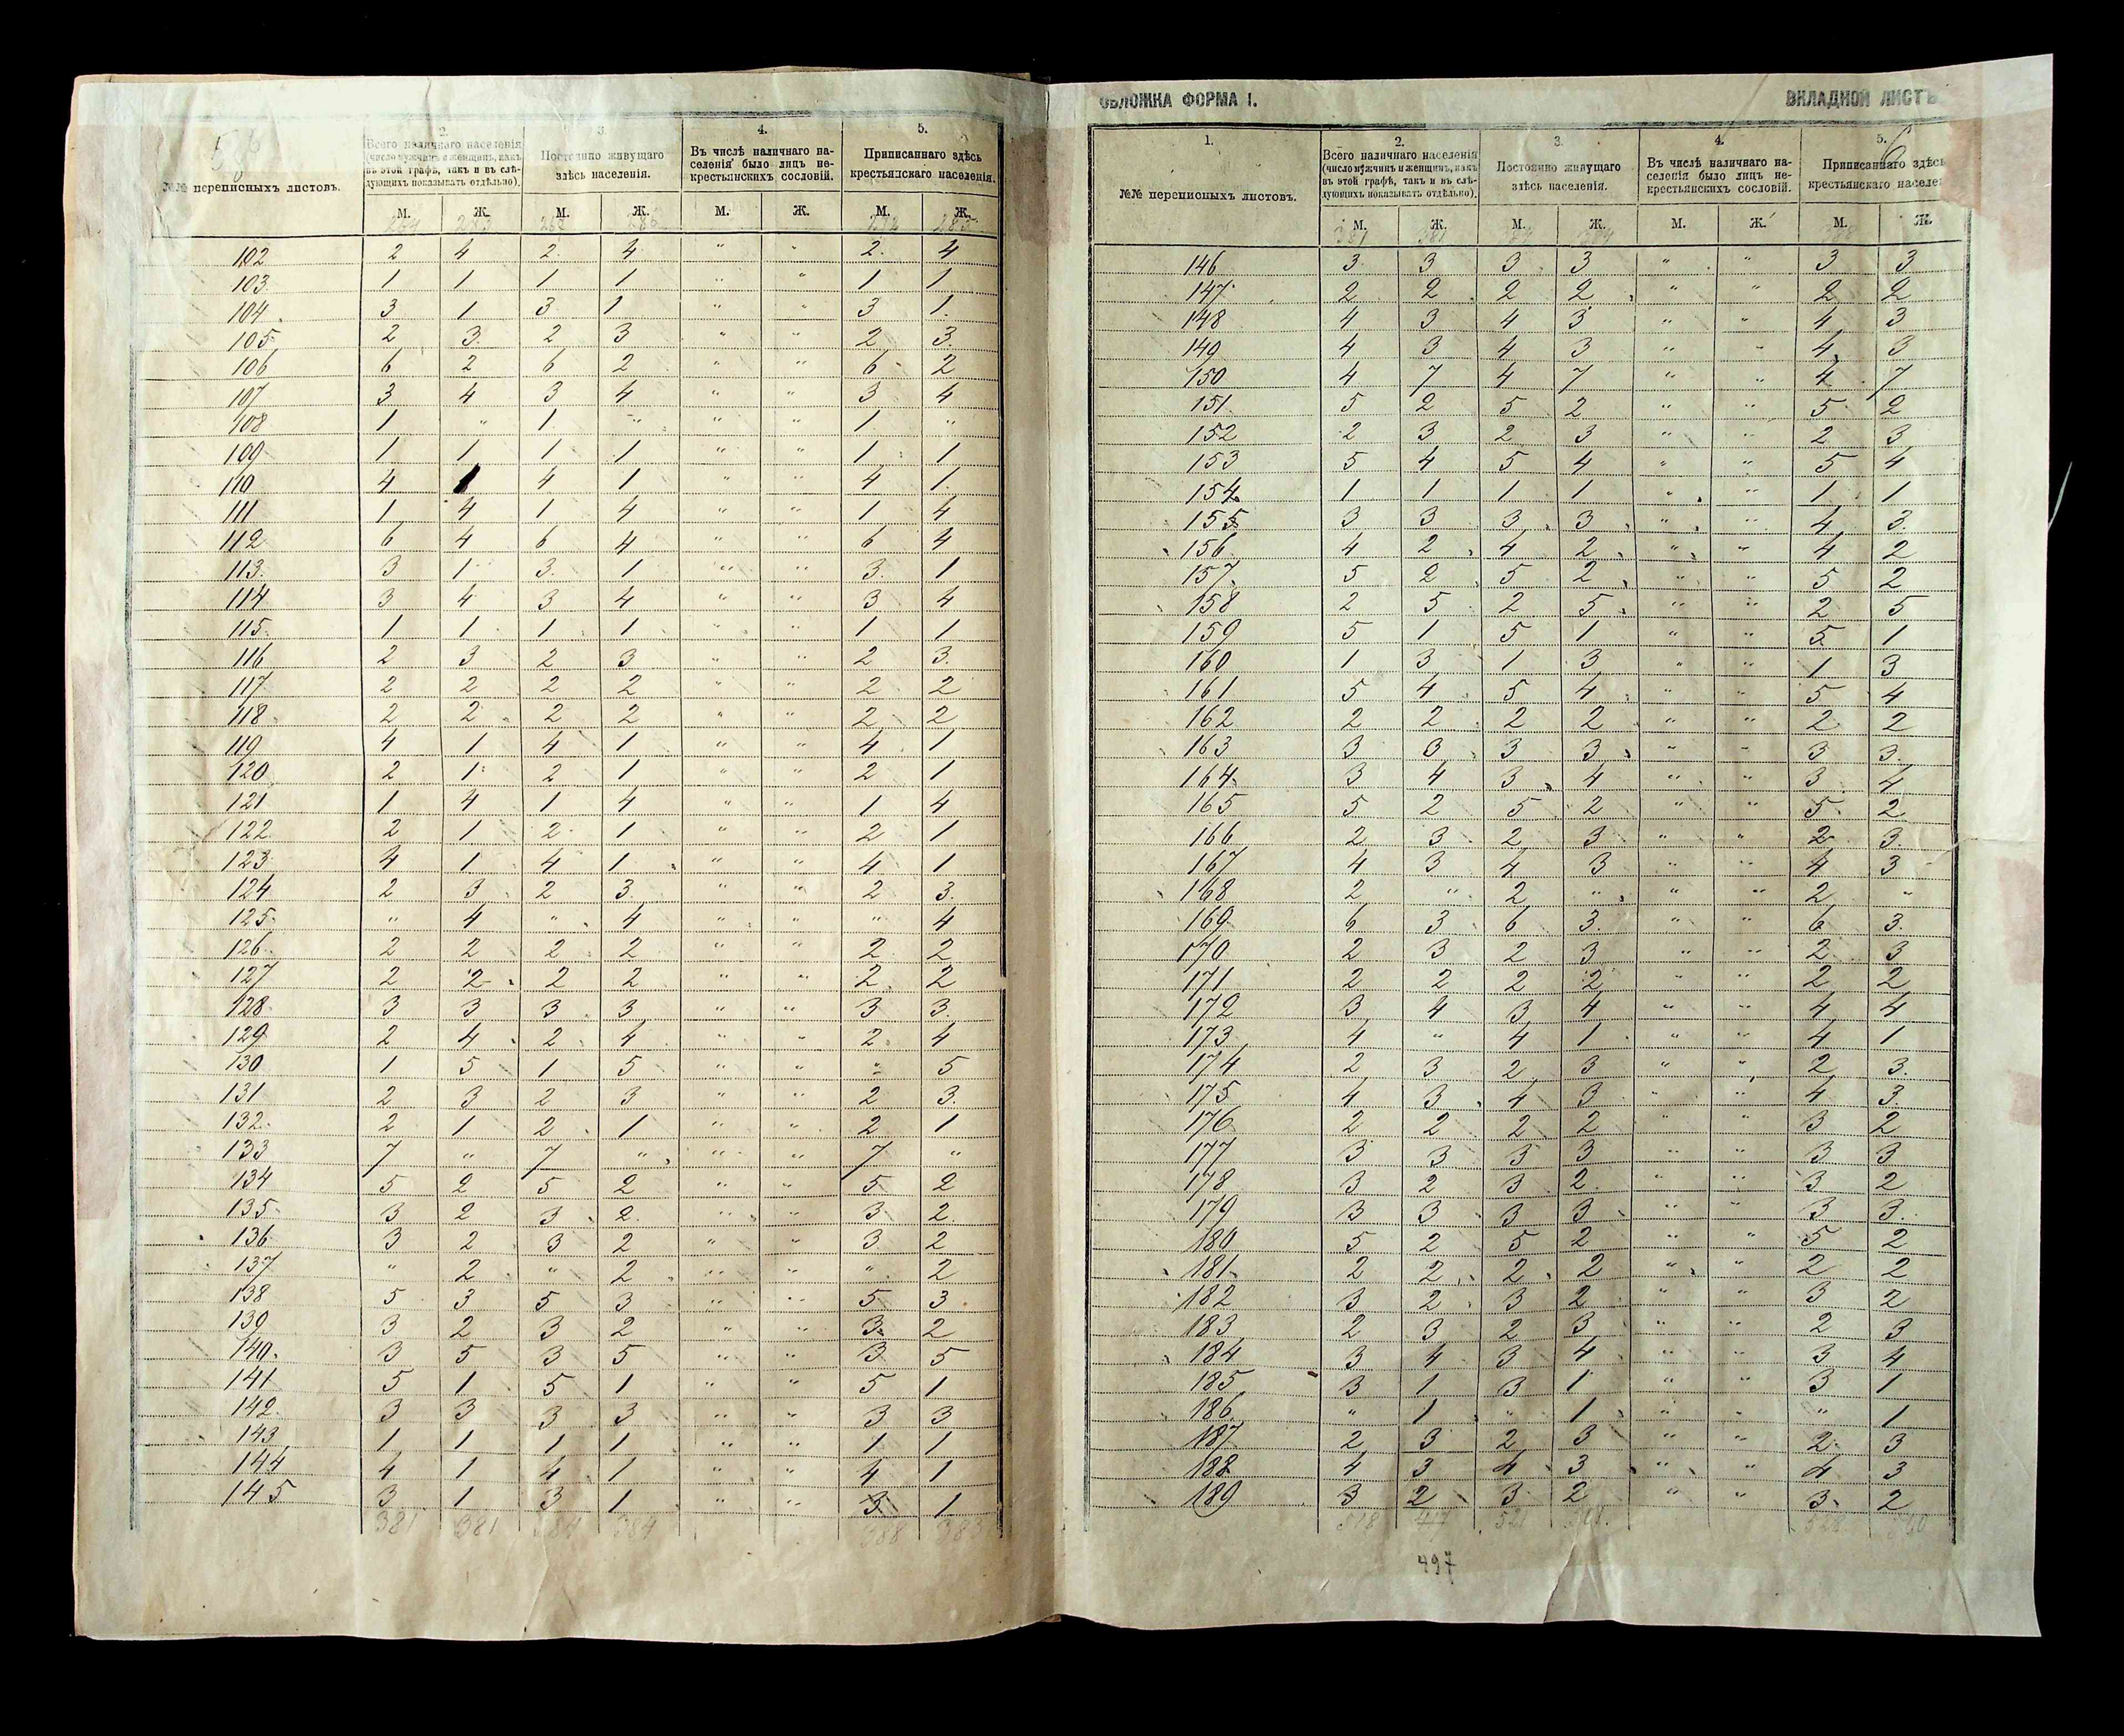 58б
2. 3. 4. 5.
№№ переписныхъ листовъ.
Всего наличнаго населенія (число мужчинъ и женщинъ, какъ въ этой графѣ, такъ и въ слѣдующихъ показывать отдѣльно).
Постоянно живущаго здѣсь населенія.
Въ числѣ наличнаго населенія было лицъ некрестьянскихъ сословій.
Приписаннаго здѣсь крестьянскаго населенія.
М. Ж. М. Ж. М. Ж. М. Ж.
102 2 4 2 4 " " 2 4
103 1 1 1 1 " " 1 1
104 3 1 3 1 " " 3 1
105 2 3 2 3 " " 2 3
106 6 2 6 2 " " 6 2
107 3 4 3 4 " " 3 4
108 1 " 1 " " " 1 "
109 1 1 1 1 " " 1 1
110 4 1 4 1 " " 4 1
111 1 4 1 4 " " 1 4
112 6 4 6 4 " " 6 4
113 3 1 3 1 " " 3 1
114 3 4 3 4 " " 3 4
115 1 1 1 1 " " 1 1
116 2 3 2 3 " " 2 3
117 2 2 2 2 " " 2 2
118 2 2 2 2 " " 2 2
119 4 1 4 1 " " 4 1
120 2 1 2 1 " " 2 1
121 1 4 1 4 " " 1 4
122 2 1 2 1 " " 2 1
123 4 1 4 1 " " 4 1
124 2 3 2 3 " " 2 3
125 " 4 " 4 " " " 4
126 2 2 2 2 " " 2 2
127 2 2 2 2 " " 2 2
128 3 3 3 3 " " 3 3
129 2 4 2 4 " " 2 4
130 1 5 1 5 " " " 5
131 2 3 2 3 " " 2 3
132 2 1 2 1 " " 2 1
133 7 " 7 " " " 7 "
134 5 2 5 2 " " 5 2
135 3 2 3 2 " " 3 2
136 3 2 3 2 " " 3 2
137 " 2 " 2 " " " 2
138 5 3 5 3 " " 5 3
139 3 2 3 2 " " 3 2
140 3 5 3 5 " " 3 5
141 5 1 5 1 " " 5 1
142 3 3 3 3 " " 3 3
143 1 1 1 1 " " 1 1
144 4 1 4 1 " " 4 1
145 3 1 3 1 " " 3 1
381 381 384 384 388 383
ОБЛОЖКА ФОРМА I. ВКЛАДНОЙ ЛИСТЪ
6
1. 2. 3. 4. 5.
№№ переписныхъ листовъ.
Всего наличнаго населенія (число мужчинъ и женщинъ, какъ въ этой графѣ, такъ и въ слѣдующихъ показывать отдѣльно).
Постоянно живущаго здѣсь населенія.
Въ числѣ наличнаго населенія было лицъ некрестьянскихъ сословій.
Приписаннаго здѣсь крестьянскаго населе
М. Ж. М. Ж. М. Ж. М. Ж.
381 381
146 3 3 3 3 " " 3 3
147 2 2 2 2 " " 2 2
148 4 3 4 3 " " 4 3
149 4 3 4 3 " " 4 3
150 4 7 4 7 " " 4 7
151 5 2 5 2 " " 5 2
152 2 3 2 3 " " 2 3
153 5 4 5 4 " " 5 4
154 1 1 1 1 " " 1 1
155 3 3 3 3 " " 4 3
156 4 2 4 2 " " 4 2
157 5 2 5 2 " " 5 2
158 2 5 2 5 " " 2 5
159 5 1 5 1 " " 5 1
160 1 3 1 3 " " 1 3
161 5 4 5 4 " " 5 4
162 2 2 2 2 " " 2 2
163 3 3 3 3 " " 3 3
164 3 4 3 4 " " 3 4
165 5 2 5 2 " " 5 2
166 2 3 2 3 " " 2 3
167 4 3 4 3 " " 4 3
168 2 " 2 " " " 2 "
169 6 3 6 3 " " 6 3
170 2 3 2 3 " " 2 3
171 2 2 2 2 " " 2 2
172 3 4 3 4 " " 4 4
173 4 " 4 1 " " 4 1
174 2 3 2 3 " " 2 3
175 4 3 4 3 " " 4 3
176 2 2 2 2 " " 3 2
177 3 3 3 3 " " 3 3
178 3 2 3 2 " " 3 2
179 3 3 3 3 " " 3 3
180 5 2 5 2 " " 5 2
181 2 2 2 2 " " 2 2
182 3 2 3 2 " " 3 2
183 2 3 2 3 " " 2 3
184 3 4 3 4 " " 3 4
185 3 1 3 1 " " 3 1
186 " 1 " 1 " " " 1
187 2 3 2 3 " " 2 3
188 4 3 4 3 " " 4 3
189 3 2 3 2 " " 3 2
518 417 521
497